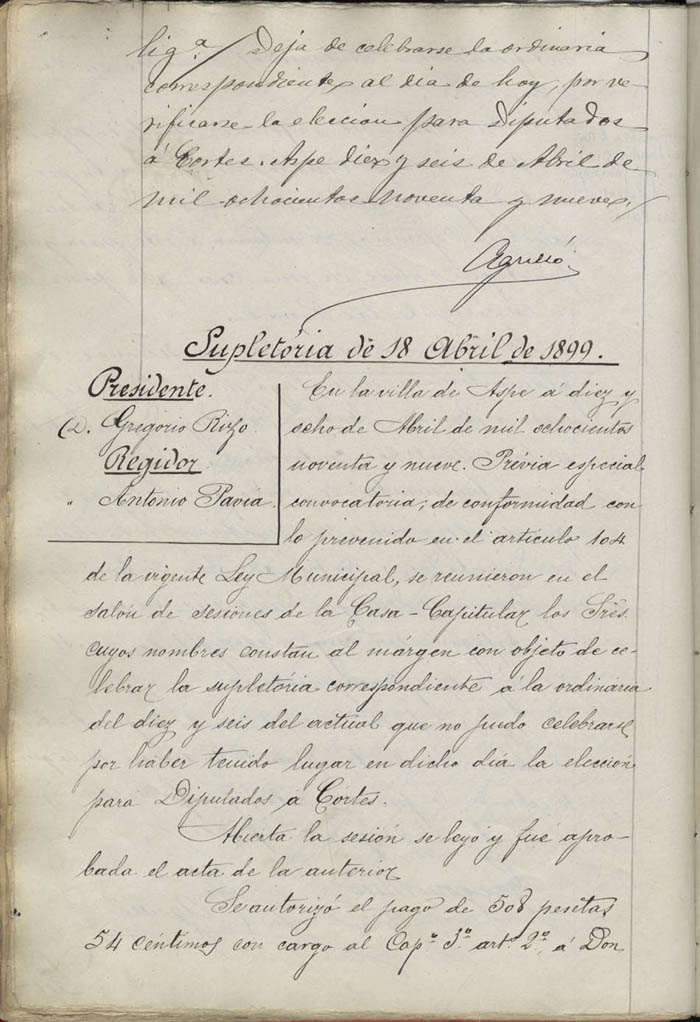 lig.ª/ Deja de celebrarse la ordinaria
correspondiente al dia de hoy, por ve-
rificarse la eleccion para Diputados
á Cortes. Aspe diez y seis de Abril de
mil ochocientos noventa y nueve./
Supletória de 18 Abril de 1899.
Presidente.
D. Gregorio Rizo
Regidor
" Antonio Pavia.
En la villa de Aspe á diez y
ocho de Abril de mil ochocientos
noventa y nueve. Prévia especial
convocatoria, de conformidad con
lo prevenido en el articulo 104
de la vigente Ley Municipal, se reunieron en el
salón de sesiones de la Casa-Capitular los Sres.
cuyos nombres constan al márgen con objeto de ce-
lebrar la supletória correspondiente á la ordinaria
del diez y seis del actual que no pudo celebrarse
por haber tenido lugar en dicho dia la elección
para Diputados á Córtes.
Abierta la sesión se leyó y fué apro-
bada el acta de la anterior
Se autorizó el pago de 508 pesetas
54 céntimos con cargo al Cap.º 3.º art.º 2.º, á Don